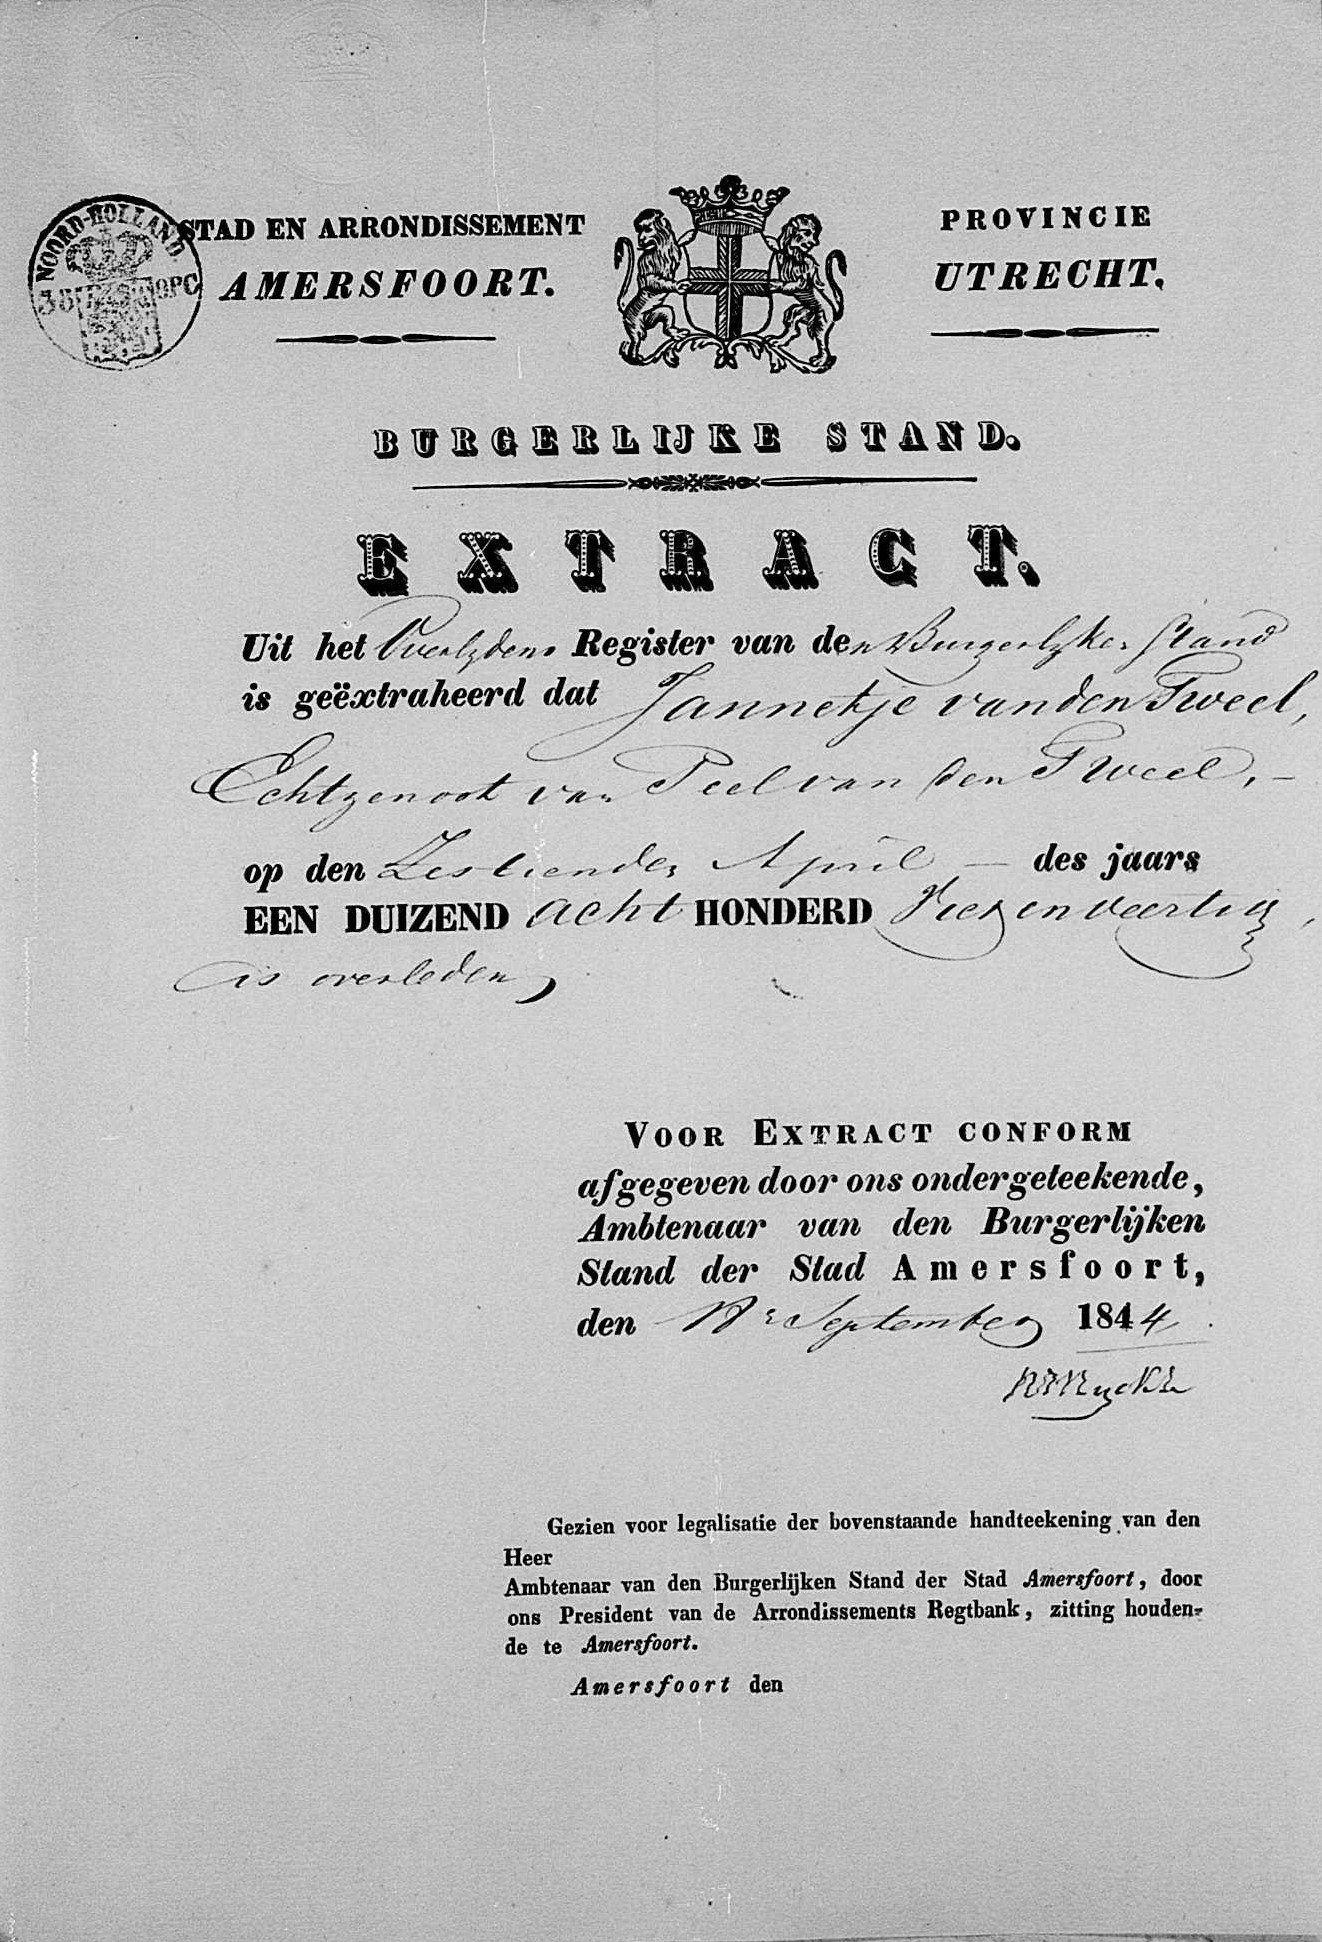 NOORD-HOLLAND
35 OPC
STAD EN ARRONDISSEMENT
AMERSFOORT.
PROVINCIE
UTRECHT.
BURGERLIJKE STAND.
EXTRACT.
Uit het Overlydens Register van den Burgerlyken Stand
is geëxtraheerd dat Jannetje van den Tweel,
Echtgenoot van Peel van den Tweel, –
op den Zestienden April – des jaars
EEN DUIZEND acht HONDERD Vier en veertig,
is overleden,
VOOR EXTRACT CONFORM
afgegeven door ons ondergeteekende,
Ambtenaar van den Burgerlijken
Stand der Stad Amersfoort,
den September 1844
Gezien voor legalisatie der bovenstaande handteekening van den
Heer
Ambtenaar van den Burgerlijken Stand der Stad Amersfoort, door
ons President van de Arrondissements Regtbank, zitting houden-
de te Amersfoort.
Amersfoort den